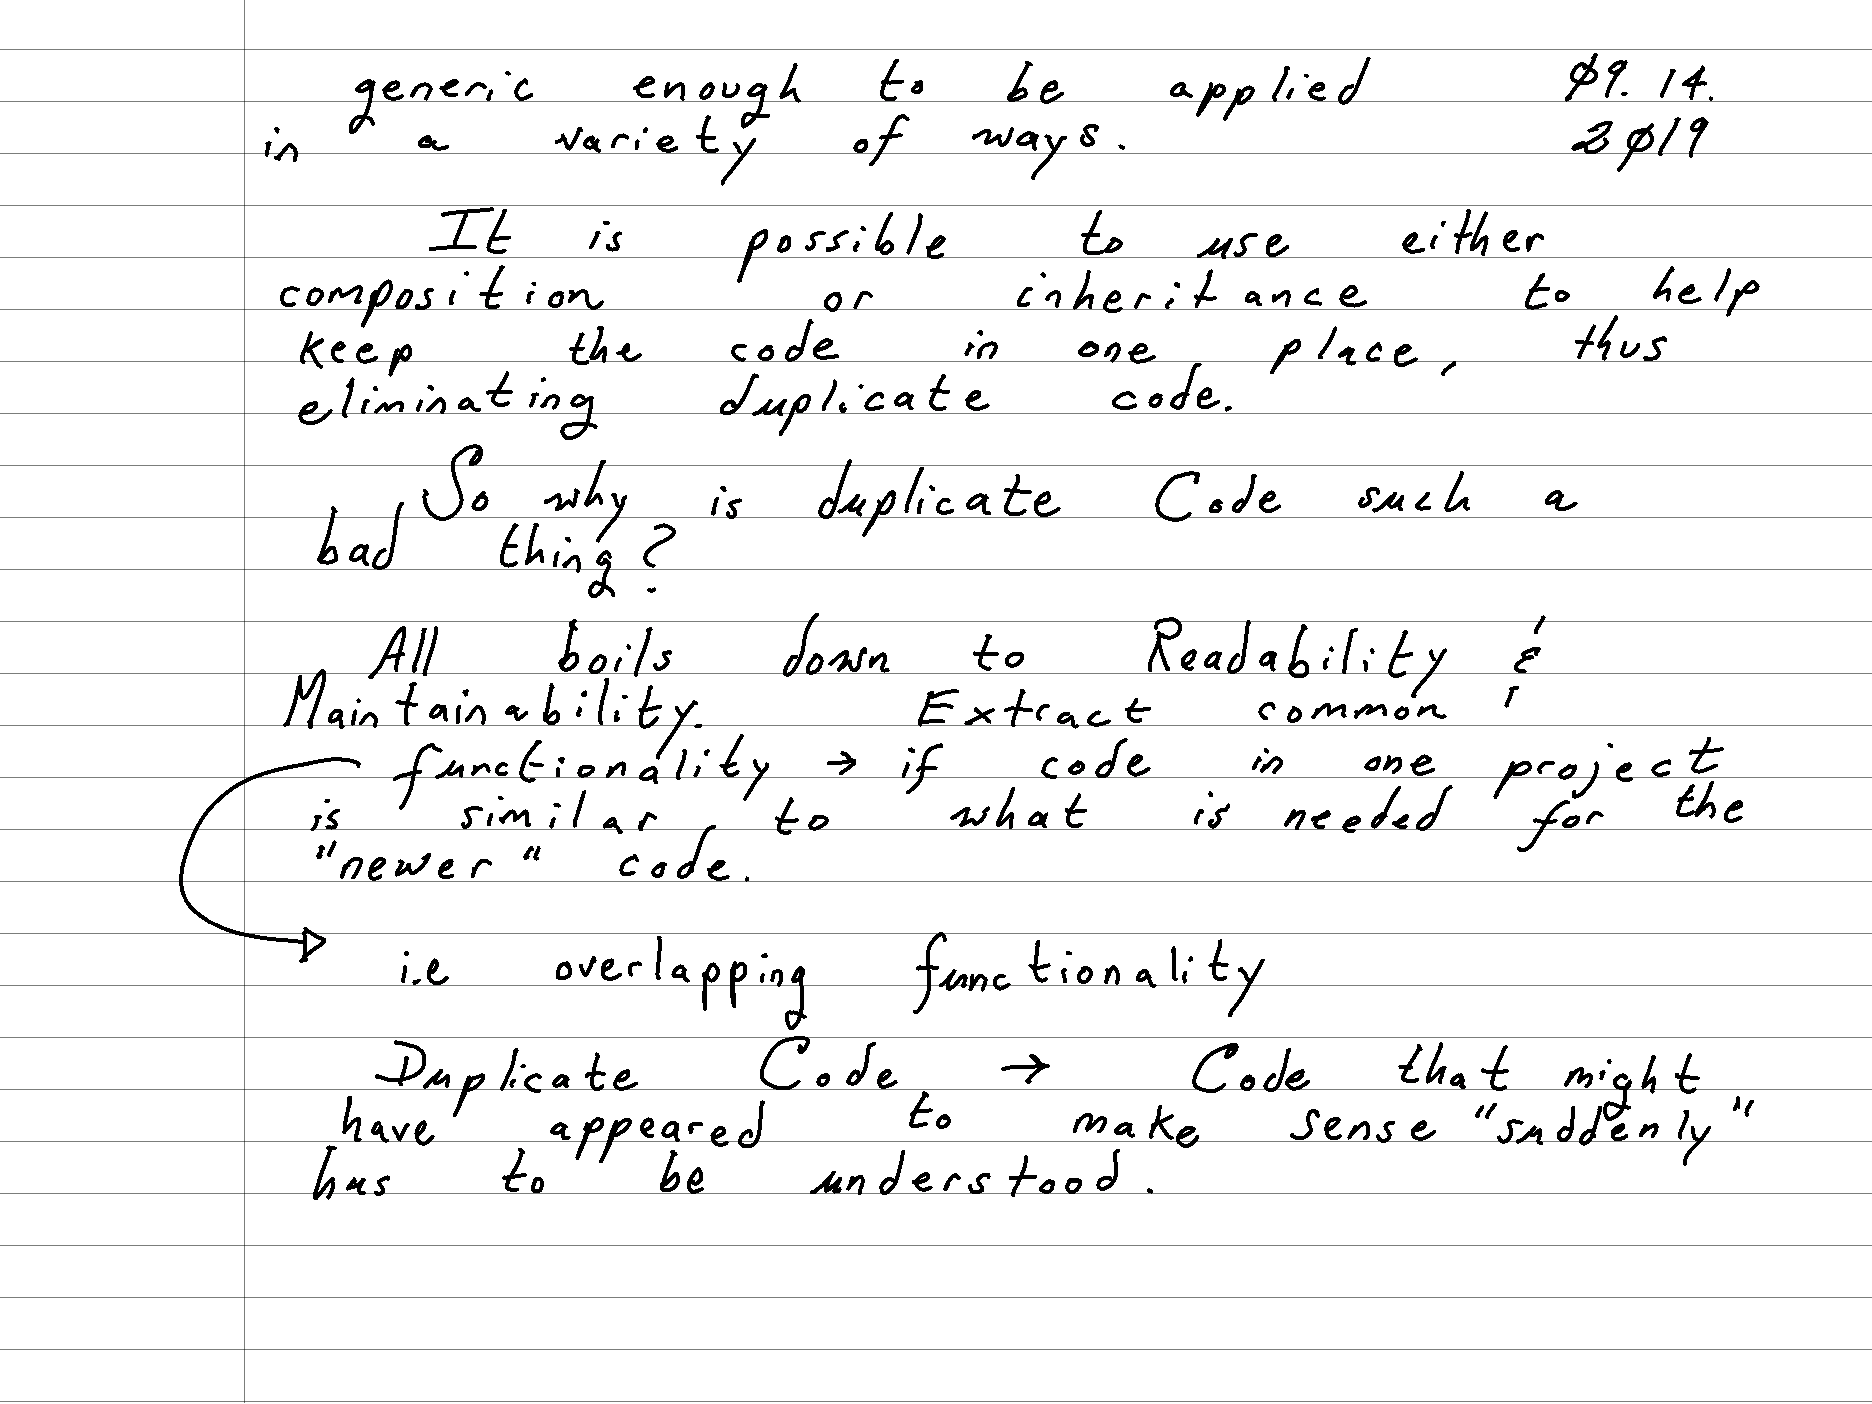 generic enough to be applied Ø9. 14.
in a variety of ways. 2Ø19
It is possible to use either
composition or inheritance to help
keep the code in one place, thus
eliminating duplicate code.
So why is duplicate Code such a
bad thing?
All boils down to Readability &
Maintainability. Extract common
functionality → if code in one project
is similar to what is needed for the
"newer" code.
i.e overlapping functionality
Duplicate Code → Code that might
have appeared to make sense "suddenly"
has to be understood.